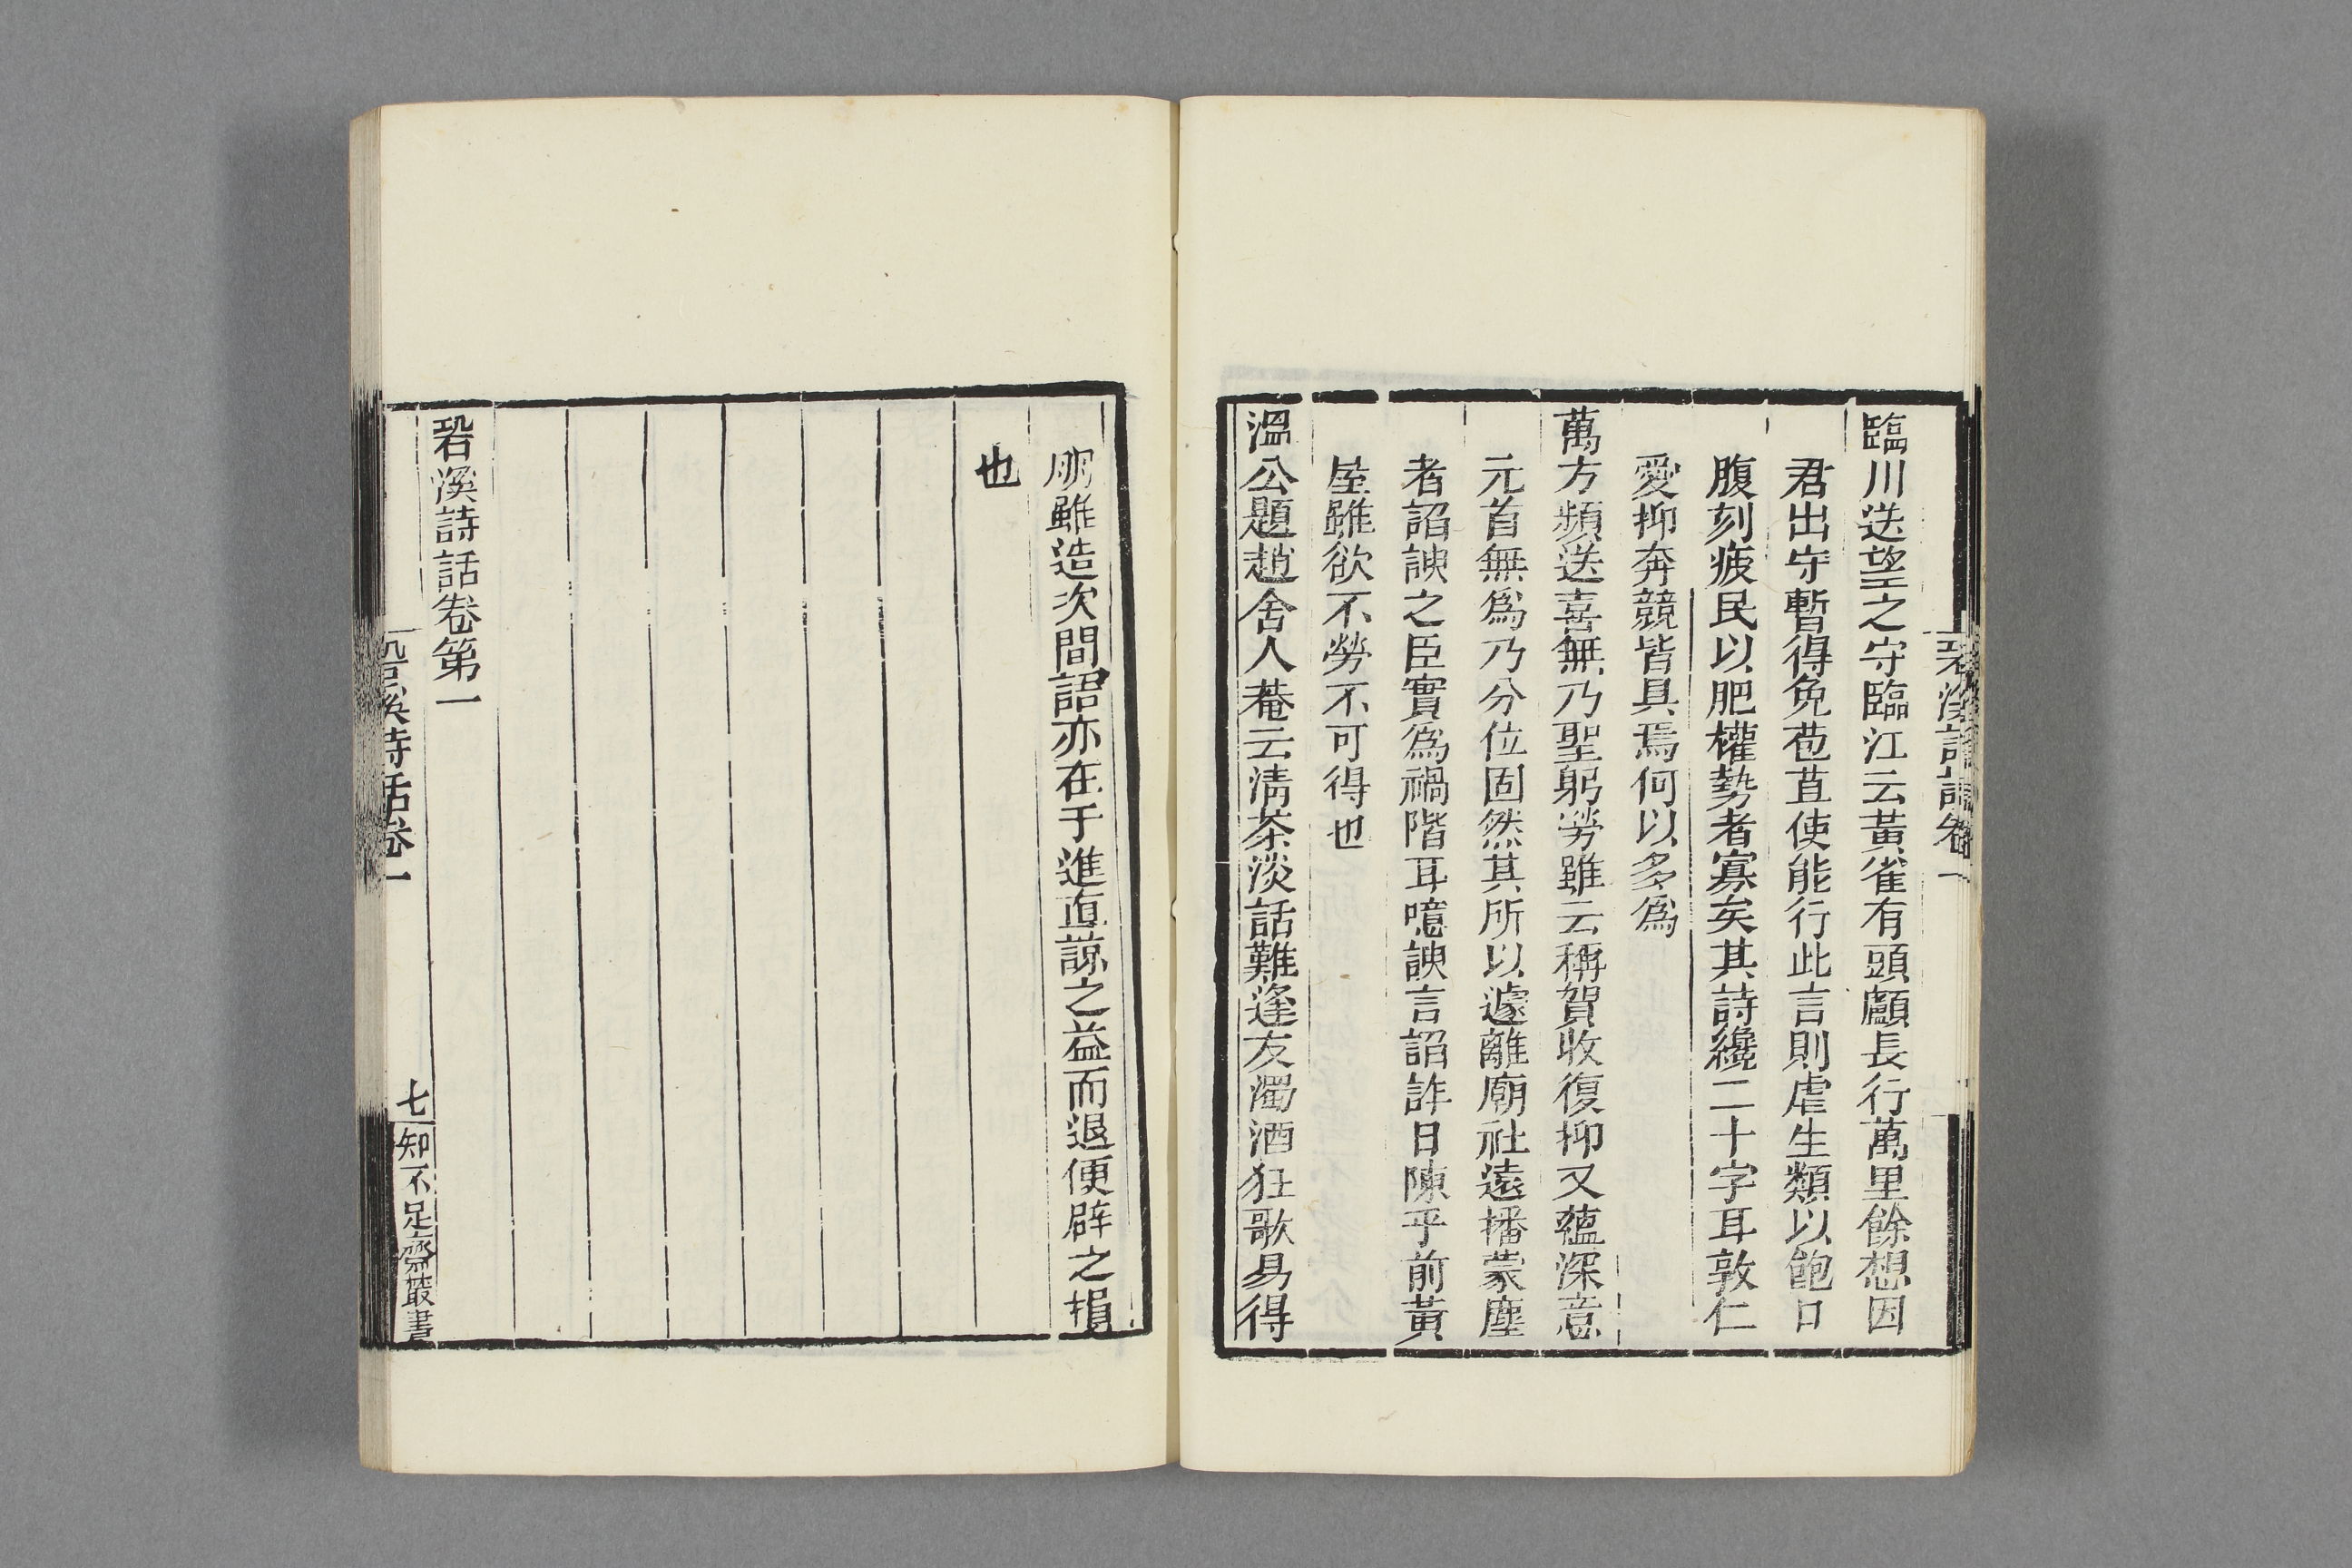 臨川送望之守臨江云黃雀有頭顱長行萬里餘想因
君出守暫得免苞苴使能行此言則虐生類以飽口
腹刻疲民以肥權勢者寡矣其詩纔二十字耳敦仁
愛抑奔競皆具焉何以多爲
萬方頻送喜無乃聖躬勞雖云稱賀收復抑又蘊深意
元首無爲乃分位固然其所以遽離廟社遠播蒙塵
者諂諛之臣實爲禍階耳噫諛言諂詐日陳乎前黃
屋雖欲不勞不可得也
溫公題趙舍人菴云淸茶淡話難逢友濁酒狂歌易得
朋雖造次間語亦在于進直諒之益而退便辟之損
也
䂬溪詩話卷第一
䂬溪詩話卷一
七
知不足齋叢書